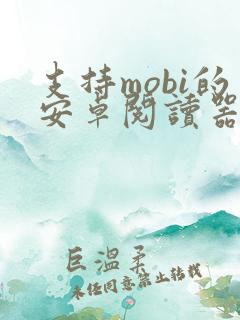 支持mobi的
安卓閱讀器
巨溫柔
未经同意禁止转载